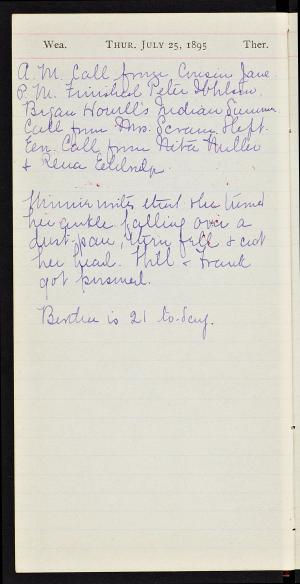 Wea. THUR. JULY 25, 1895 Ther.
A.M. Call from Cousin Jane.
P.M. Finished Peter
Began Howell's Indian Summer.
Call from Mrs.
Eve. Call from Nita Muller
& Rena Eldredge
Minnie writes that she turned
her ankle falling over a
dust-pan, then fell & cut
her head. Will & Frank
got poisoned.
Bertha is 21 to-day.